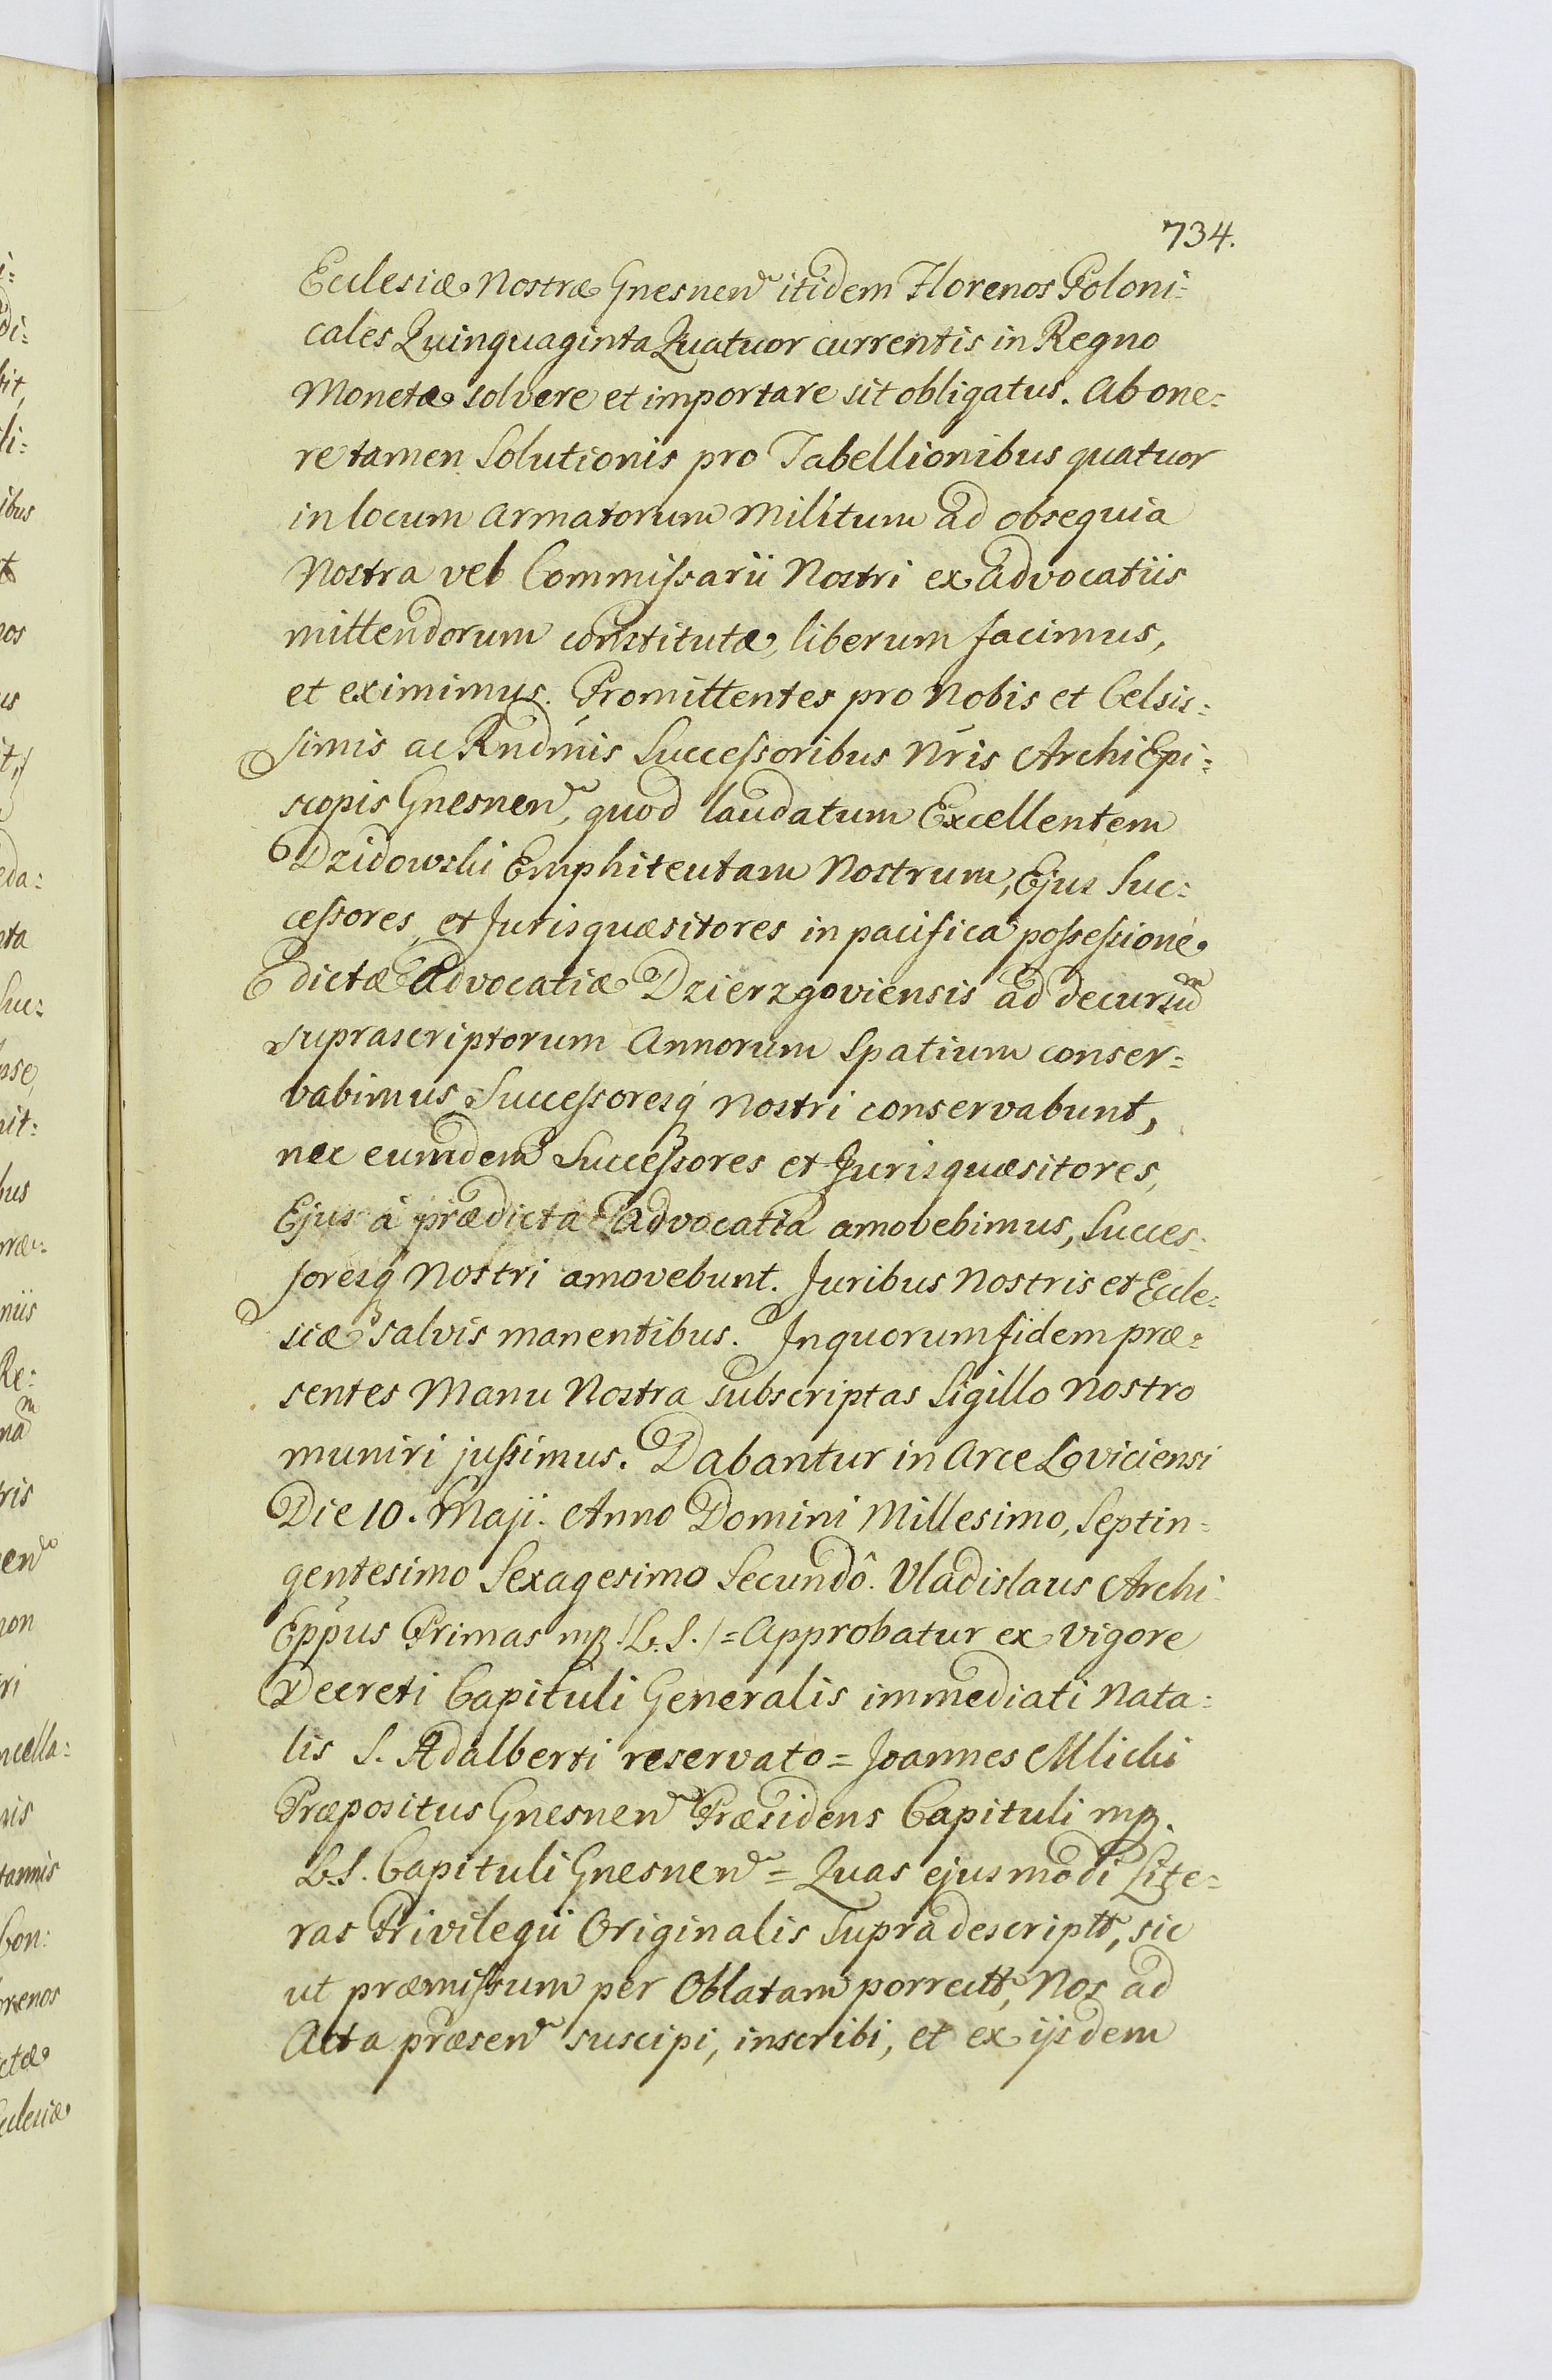 734.
Ecclesiæ Nostræ Gnesnen itidem Florenos Poloni=
cales Quinquaginta Quatuor currentis in Regno
Monetæ solvere et importare sit obligatus. Ab one=
re tamen Solutionis pro Tabellionibus quatuor
in locum Armatorum Militum ad obsequia
Nostra vel Commissarii Nostri ex Advocatiis
mittendorum constitutæ, liberum facimus,
et eximimus. Promittentes pro Nobis et Celsis=
simis ac Rndmis Successoribus Nris Archi Epi=
scopis Gnesnen, quod laudatum Excellentem
Dzidowski Emphiteutam Nostrum, Ejus Suc=
cessores, et Jurisquæsitores in pacifica possessione
dictæ Advocatiæ Dzierzgoviensis ad decursum
suprascriptorum Annorum Spatium conser=
vabimus Successoresq Nostri conservabunt,
nec eumdem Successores et Jurisquæsitores,
Ejus à prædicta Advocatia amovebimus, Succes=
soresq Nostri amovebunt. Juribus Nostris et Eccle=
siæ salvis manentibus. In quorum fidem præ=
sentes Manu Nostra subscriptas Sigillo Nostro
muniri jussimus. Dabantur in Arce Loviciensi
Die 10. Maji. Anno Domini Millesimo, Septin=
gentesimo Sexagesimo Secundô. Vladislaus Archi
Eppus Primas mp. /L.S./ = Approbatur ex vigore
Decreti Capituli Generalis immediati Nata=
lis S. Adalberti reservato = Joannes Mlicki
Præpositus Gnesnen Præsidens Capituli mp.
L.S. Capituli Gnesnen = Quas ejusmodi Lite=
ras Privilegii Originalis Supradescriptt, sic
ut præmissum per Oblatam porrectt, Nos ad
Acta præsen suscipi, inscribi, et ex ijsdem